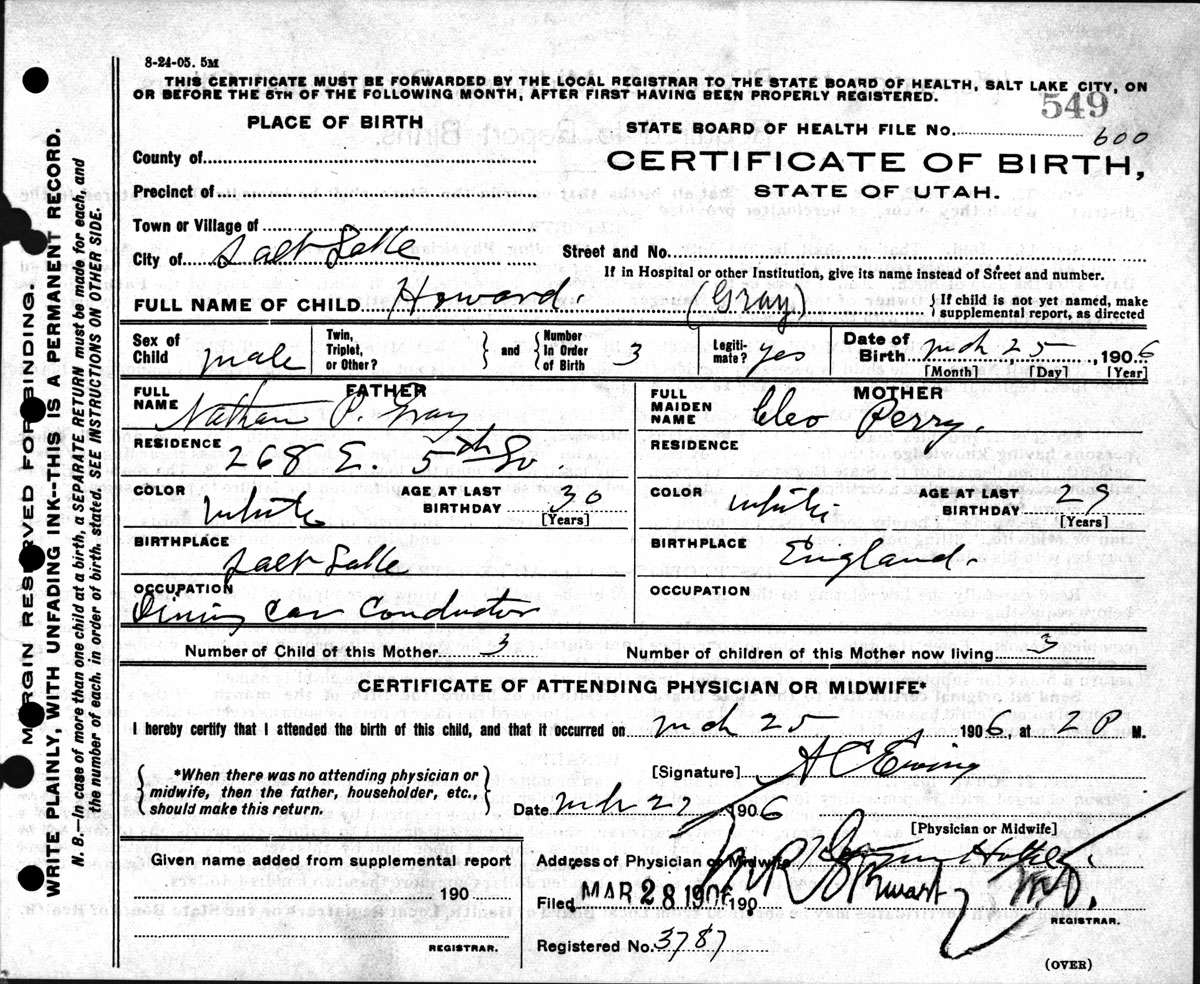 8-24-05. 5M
THIS CERTIFICATE MUST BE FORWARDED BY THE LOCAL REGISTRAR TO THE STATE BOARD OF HEALTH, SALT LAKE CITY, ON
OR BEFORE THE 5TH OF THE FOLLOWING MONTH, AFTER FIRST HAVING BEEN PROPERLY REGISTERED.
549
PLACE OF BIRTH
STATE BOARD OF HEALTH FILE No. 600
County of
CERTIFICATE OF BIRTH,
Precinct of
STATE OF UTAH.
Town or Village of
City of Salt Lake
Street and No.
If in Hospital or other Institution, give its name instead of Street and number.
FULL NAME OF CHILD Howard. (Gray) } If child is not yet named, make
supplemental report, as directed
Sex of Child male
Twin, Triplet, or Other? } and { Number in Order of Birth 3
Legiti-mate? yes
Date of Birth Mch 25, 1906
[Month] [Day] [Year]
FATHER
FULL NAME Nathan P. Gray
MOTHER
FULL MAIDEN NAME Cleo Perry.
RESIDENCE 268 E. 5th So
RESIDENCE
COLOR White
AGE AT LAST BIRTHDAY 30
[Years]
COLOR White
AGE AT LAST BIRTHDAY 29
[Years]
BIRTHPLACE Salt Lake
BIRTHPLACE England.
OCCUPATION Dining Car Conductor
OCCUPATION
Number of Child of this Mother 3
Number of children of this Mother now living 3
CERTIFICATE OF ATTENDING PHYSICIAN OR MIDWIFE*
I hereby certify that I attended the birth of this child, and that it occurred on Mch 25 1906, at 2 P M.
{ *When there was no attending physician or
midwife, then the father, householder, etc.,
should make this return. }
[Signature] A C Ewing
Date Mch 27 1906
[Physician or Midwife]
Given name added from supplemental report
190
REGISTRAR.
Address of Physician or Midwife
Filed MAR 28 1906 190 Stewart MD.
REGISTRAR.
Registered No. 3787
(OVER)
MARGIN RESERVED FOR BINDING.
WRITE PLAINLY, WITH UNFADING INK--THIS IS A PERMANENT RECORD.
N. B.--In case of more than one child at a birth, a SEPARATE RETURN must be made for each, and
the number of each, in order of birth, stated. SEE INSTRUCTIONS ON OTHER SIDE.